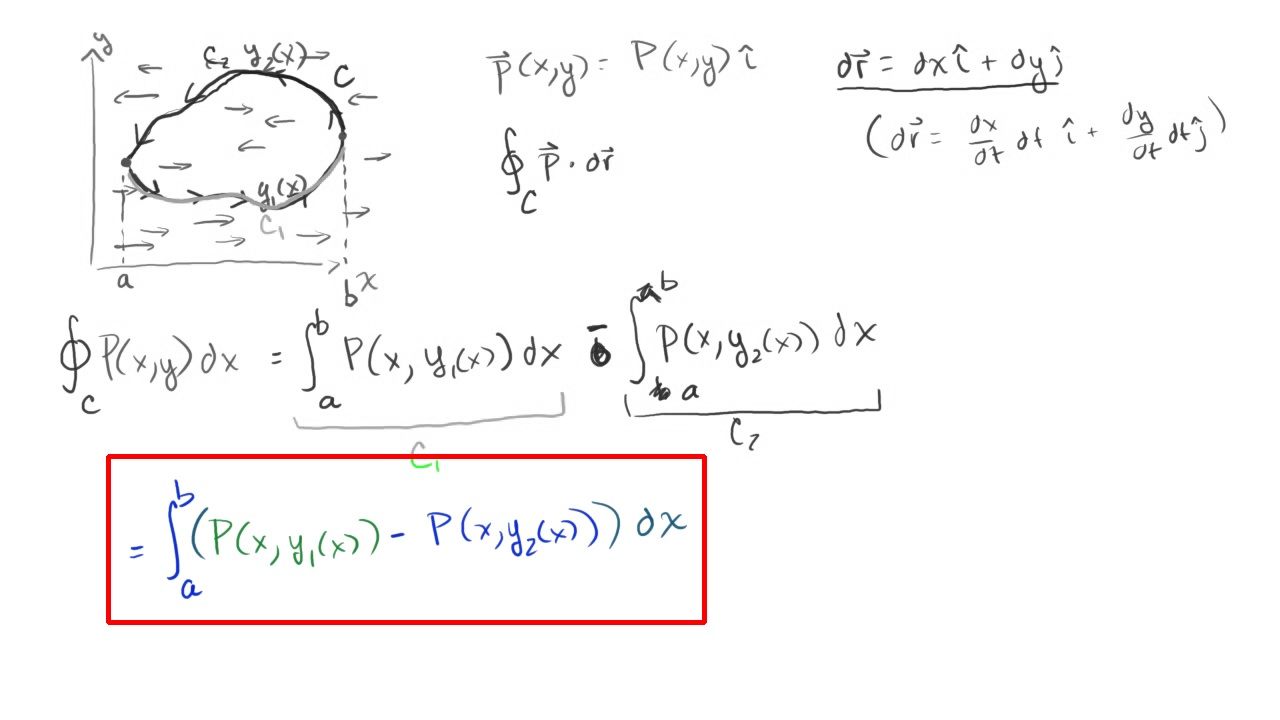 y
c₂ y₂(x)
C
y₁(x)
C₁
a
b x
P⃗(x,y) = P(x,y) î
dr⃗ = dx î + dy ĵ
(dr⃗ = dx/dt dt î + dy/dt dt ĵ)
∮_C P⃗ · dr⃗
∮_C P(x,y) dx = ∫_a^b P(x, y₁(x)) dx - ∫_a^b P(x, y₂(x)) dx
C₁
C₂
= ∫_a^b (P(x, y₁(x)) - P(x, y₂(x))) dx